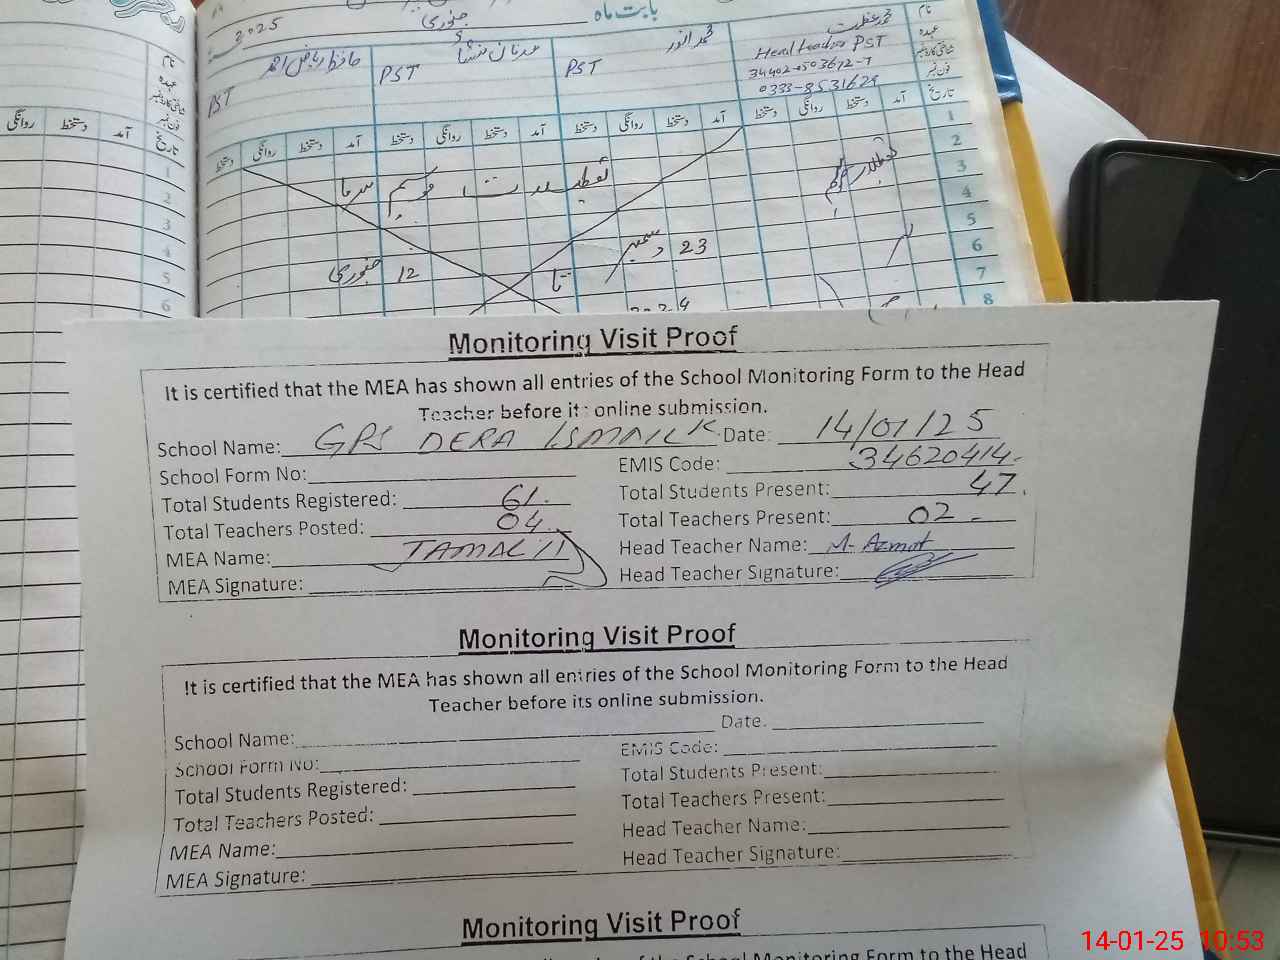 2025 جنوری بابت ماہ
نام
عہدہ
شناختی کارڈ نمبر
فون نمبر
تاریخ
محمد عظمت
Head teacher PST
34402-0503672-7
0333-8531629
محمد انور
PST
عدنان منشا
PST
حافظ ریاض احمد
PST
آمد دستخط روانگی دستخط آمد دستخط روانگی دستخط آمد دستخط روانگی دستخط آمد دستخط روانگی دستخط
نام
عہدہ
شناختی کارڈ نمبر
فون نمبر
تاریخ
آمد دستخط روانگی
1
2
3
4
5
6
7
8
1
2
3
4
5
6
تعطیلات موسم سرما
23 دسمبر تا 12 جنوری
Monitoring Visit Proof
It is certified that the MEA has shown all entries of the School Monitoring Form to the Head
Teacher before its online submission.
School Name: GPS DERA ISMAIL K Date: 14/01/25
School Form No: EMIS Code: 34620414
Total Students Registered: 61 Total Students Present: 47
Total Teachers Posted: 04 Total Teachers Present: 02
MEA Name: JAMAL Head Teacher Name: M. Azmat
MEA Signature: Head Teacher Signature:
Monitoring Visit Proof
It is certified that the MEA has shown all entries of the School Monitoring Form to the Head
Teacher before its online submission.
School Name: Date:
School Form No: EMIS Code:
Total Students Registered: Total Students Present:
Total Teachers Posted: Total Teachers Present:
MEA Name: Head Teacher Name:
MEA Signature: Head Teacher Signature:
Monitoring Visit Proof
of the School Monitoring Form to the Head
14-01-25 10:53